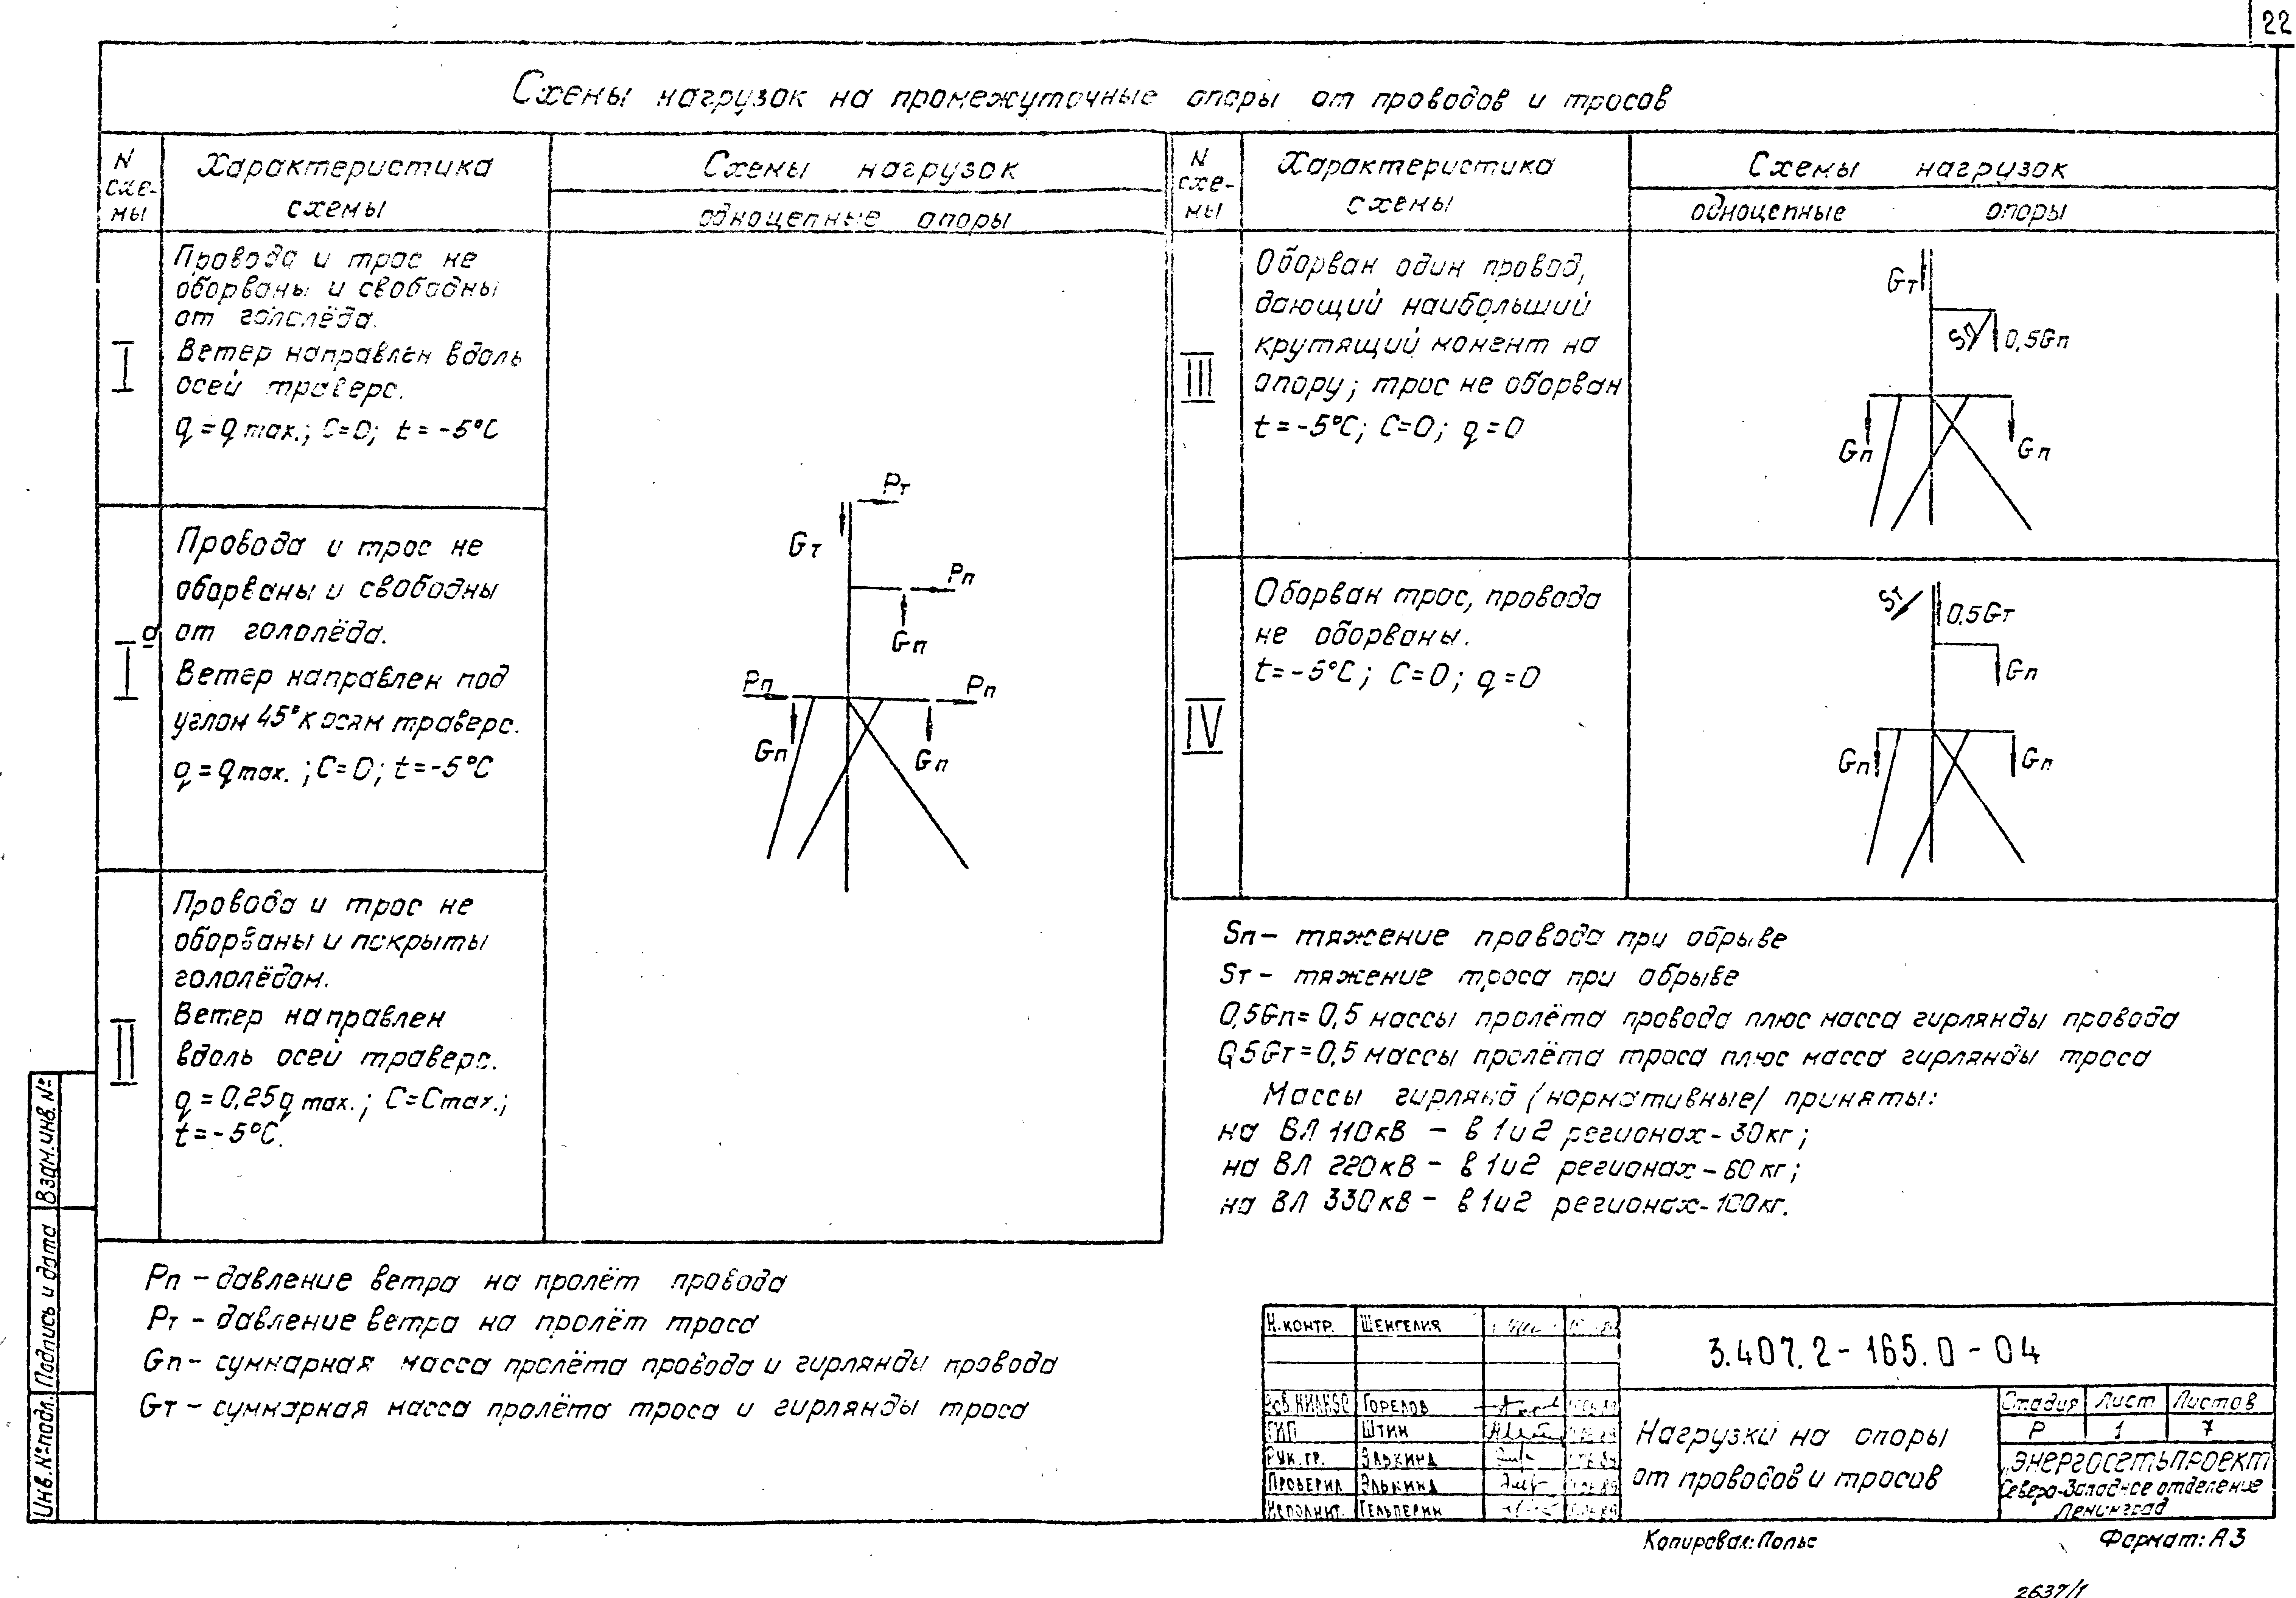 22
Схемы нагрузок на промежуточные опоры от проводов и тросов
N схе-мы
Характеристика схемы
Схемы нагрузок
одноцепные опоры
I
Провода и трос не
оборваны и свободны
от гололёда.
Ветер направлен вдоль
осей траверс.
q = q max.; C=0; t=-5°C
Iа
Провода и трос не
оборваны и свободны
от гололёда.
Ветер направлен под
углом 45° к осям траверс.
q = q max.; C=0; t=-5°C
II
Провода и трос не
оборваны и покрыты
гололёдом.
Ветер направлен
вдоль осей траверс.
q = 0,25q max.; C=Cmax.;
t=-5°C.
Pт
Gт
Pп
Gп
Pп
Pп
Gп
Gп
N схе-мы
Характеристика схемы
Схемы нагрузок
одноцепные опоры
III
Оборван один провод,
дающий наибольший
крутящий момент на
опору; трос не оборван
t=-5°C; C=0; q=0
Gт
Sп
0,5Gп
Gп
Gп
IV
Оборван трос, провода
не оборваны.
t=-5°C; C=0; q=0
Sт
0,5Gт
Gп
Gп
Gп
Sп - тяжение провода при обрыве
Sт - тяжение троса при обрыве
0,5Gп=0,5 массы пролёта провода плюс масса гирлянды провода
0,5Gт=0,5 массы пролёта троса плюс масса гирлянды троса
Массы гирлянд /нормативные/ приняты:
на ВЛ 110кВ - в 1и2 регионах-30кг;
на ВЛ 220кВ - в 1и2 регионах-60кг;
на ВЛ 330кВ - в 1и2 регионах-100кг.
Pп - давление ветра на пролёт провода
Pт - давление ветра на пролёт троса
Gп - суммарная масса пролёта провода и гирлянды провода
Gт - суммарная масса пролёта троса и гирлянды троса
Взам.инв.№
Подпись и дата
Инв.№подл.
Н.контр. Шенгелия
Горелов
ГИП Штин
Рук.гр. Элькинд
Проверил Элькинд
Исполнит. Гельперин
3.407.2-165.0-04
Нагрузки на опоры
от проводов и тросов
Стадия Лист Листов
Р 1 7
„Энергосетьпроект
Северо-Западное отделение
Ленинград
Копировал:
Формат: А3
2637/1